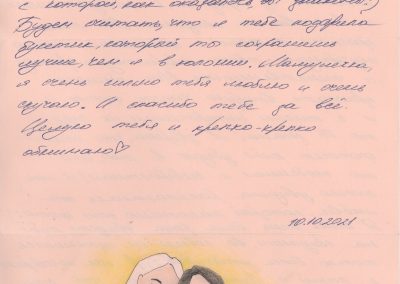 с которой, как оказалось,
Будем считать, что я тебе подарила
букетик, который ты сохранишь
лучше, чем я в колонии. Мамулечка,
я очень сильно тебя люблю и очень
скучаю. И спасибо тебе за всё.
Целую тебя и крепко-крепко
обнимаю♡
10.10.2021